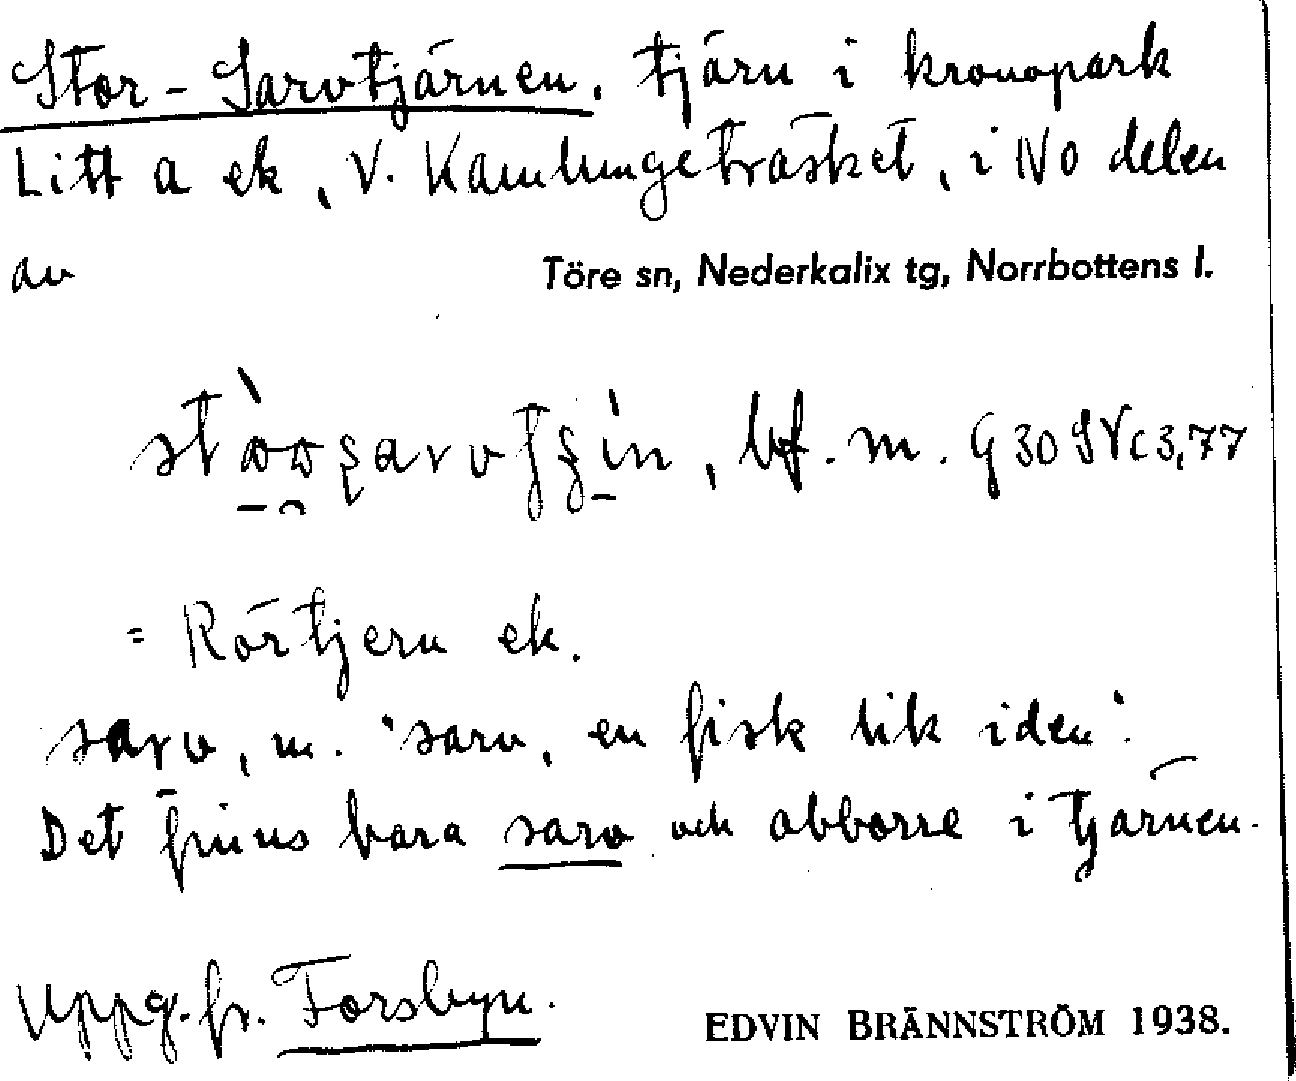 Stor-Sarvtjärnen, tjärn i kronopark
Litt a ek, V. Kamlungeträsket, i NO delen
av Töre sn, Nederkalix tg, Norrbottens l.
bf. m. G 30 SVc 3,77
= Rörtjern ek.
sarv, m. "sarv, en fisk lik iden".
Det finns bara sarv och abborre i tjärnen.
Uppg. fr. Forsbyn. EDVIN BRÄNNSTRÖM 1938.